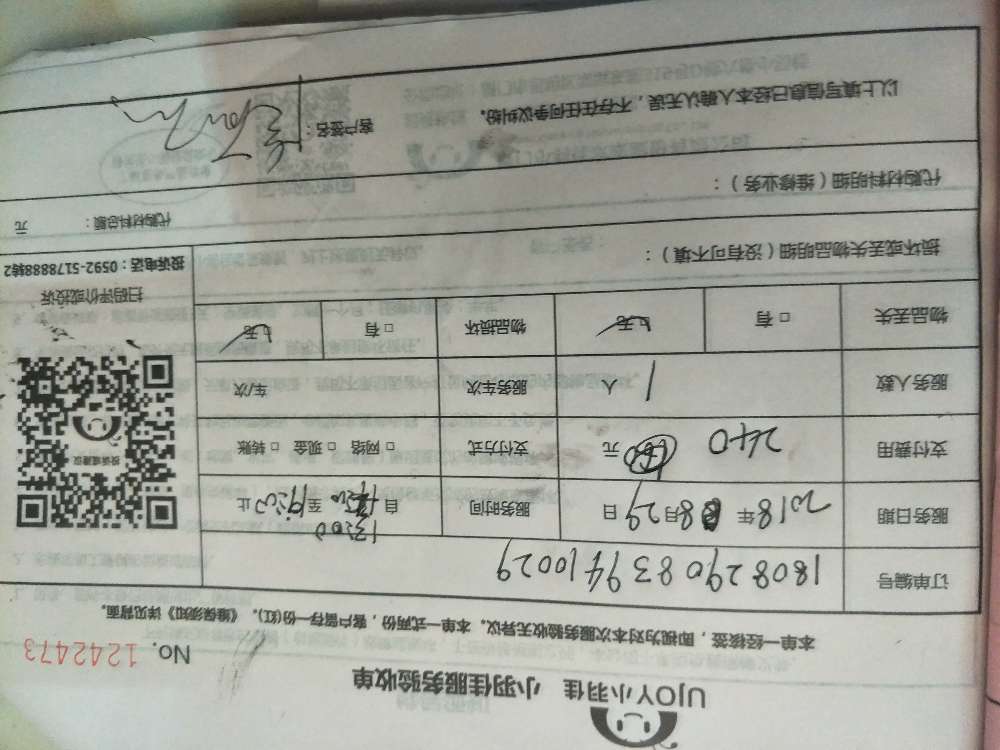 UJOY小羽佳 小羽佳服务验收单
No. 1242473
本单一经核签，即视为对本次服务验收无异议。本单一式两份，客户留存一份(红)。《维保须知》详见背面。
订单编号 1808290839410029
服务日期 2018年8月29日 服务时间 自13:00至19:00止
支付费用 240元 支付方式 □网络 □现金 □转账
服务人数 1人 服务车次 车/次
物品丢失 □有 □无 物品损坏 □有 □无
投诉或建议
扫码评价或投诉
投诉电话：0592-5178888转2
损坏或丢失物品明细（没有可不填）：
代购材料明细（维修业务）：
代购材料总额： 元
以上填写信息已经本人确认无误，不存在任何争议纠纷。 客户签名：